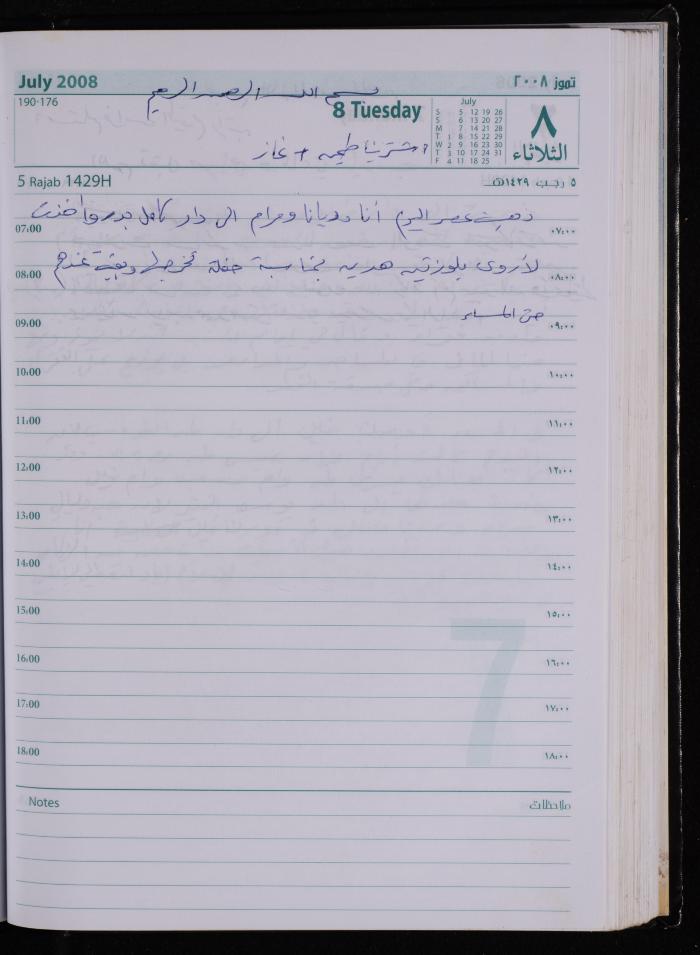 July 2008
تموز ٢٠٠٨
بسم الله الرحمن الرحيم
190-176
8 Tuesday
July
S 5 12 19 26
S 6 13 20 27
M 7 14 21 28
T 1 8 15 22 29
W 2 9 16 23 30
T 3 10 17 24 31
F 4 11 18 25
٨
الثلاثاء
اشترينا طحين + غاز
5 Rajab 1429H
٥ رجب ١٤٢٩هـ
ذهبت عصر اليوم أنا وديانا ومرام الى دار كامل بدر وأخذت
07:00 ٠٧:٠٠
لأروى بلوزتين هدية بمناسبة حفلة تخرجها وبقينا عندهم
08:00 ٠٨:٠٠
حتى المساء
09:00 ٠٩:٠٠
10:00 ١٠:٠٠
11:00 ١١:٠٠
12:00 ١٢:٠٠
13:00 ١٣:٠٠
14:00 ١٤:٠٠
15:00 ١٥:٠٠
16:00 ١٦:٠٠
17:00 ١٧:٠٠
18:00 ١٨:٠٠
7
Notes
ملاحظات